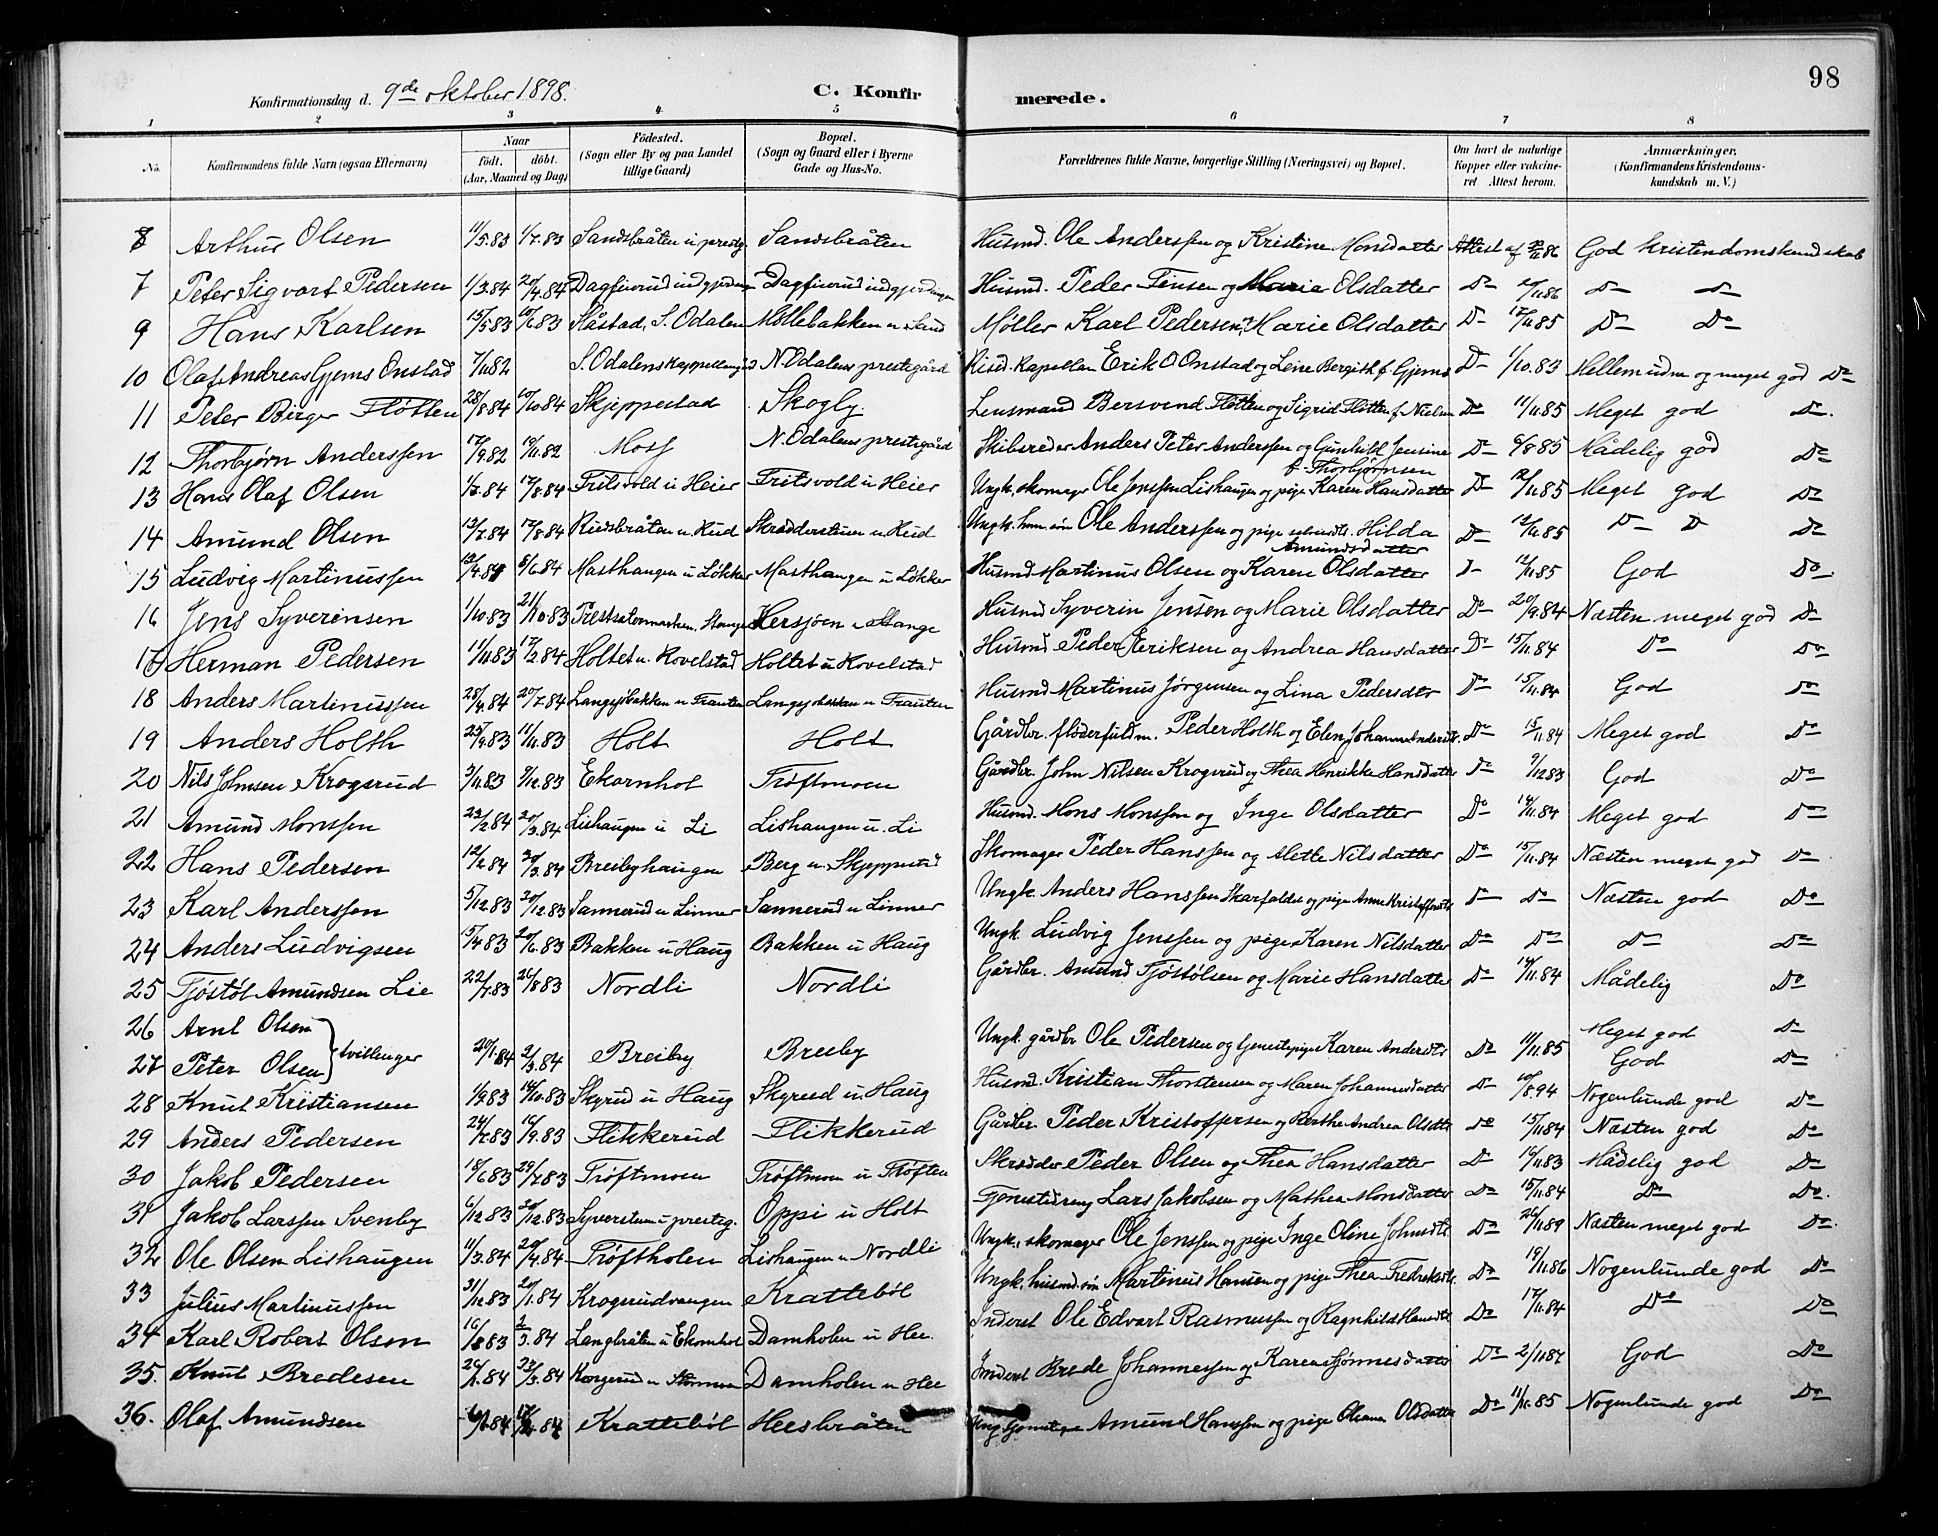 98
Konfirmationsdag d. 9de oktober 1898.
C. Konfirmerede.
1 2 3 4 5 6 7 8
No. Konfirmandens fulde Navn (ogsaa Efternavn) Naar født, døbt. (Aar, Maaned og Dag) Fødested. (Sogn eller By og paa Landet tillige Gaard) Bopæl. (Sogn og Gaard eller i Byerne Gade og Hus-No. Forældrenes fulde Navne, borgerlige Stilling (Næringsvei) og Bopæl. Om havt de naturlige Kopper eller vakcineret Attest herom. Anmærkninger, (Konfirmandens Kristendomskundskab m. V.)
8 Arthur Olsen 11/5.83 1/7.83 Sandsbråten u prestg. Sandsbråten Husmd. Ole Anderssen og Kristine Monsdatter Attest af God kristendomskundskab
7 Peter Sigvart Pedersen 1/3.84 20/4.84 Husmd. Peder Jensen og Marie Olsdatter Do Do Do
9 Hans Karlsen 15/5.83 10/6.83 Slåstad, S. Odalen Møllebakken u. Sand Møller Karl Pedersen, Marie Olsdatter Do 17/11.85 Do Do
10 Olaf Andreas Gjems Onstad 7/11.82 N. Odalens prestegård Resid. Kapellan Erik O Onstad og Leine Bergith f. Gjems Do 1/10.83 Mellem udm. og meget god Do
11 Peter Birger Fløtten 28/8.84 10/10.84 Skjeppestad Skogly Lensmand Bersvend Fløtten og Sigrid Fløtten f. Nielsen Do 11/11.85 Meget god Do.
12 Thorbjørn Anderssen 17/9.82 19/11.82 Moss N. Odalens prestegård Skibsreder Anders Peter Anderssen og Gunhild Jensine f. Thorbjørnsen Do 6/8.85 Mådelig god Do
13 Hans Olaf Olsen 17/8.84 Fritsvold u Heier Fritsvold u Heier Ungk. skomager Ole Jenssen Lishaugen og pige Karen Hansdatter Do 12/11.85 Meget god Do
14 Amund Olsen 13/7.84 17/8.84 Rudsbråten u Rud Skrædderstuen u Rud Ungk. husm. søn Ole Anderssen og pige Hilda Amundsdatter Do 12/11.85 Do Do Do
15 Ludvig Martinussen 8/6.84 Masthaugen u Løkker Masthaugen u Løkker Husmd Martinus Olsen og Karen Olsdatter Do 12/11.85 God Do.
16 Jens Syverinsen 1/10.83 21/10.83 Prestsætermarken, Stange Hersjøen Stange Husmd Syverin Jensen og Marie Olsdatter Do 20/9.84 Næsten meget god Do
17 Herman Pedersen 11/11.83 17/2.84 Holtet u. Kovelstad Holtet u Kovelstad Husmd Peder Eriksen og Andrea Hansdatter Do 15/11.84 Do Do
18 Anders Martinussen 28/4.84 20/7.84 Langsjøbakken u Frauten Langsjobakken u Frauten Husmd Martinus Jørgensen og Lina Pedersdtr Do 15/11.84 God Do
19 Anders Holth 25/9.83 11/11.83 Holt Holt Gårdbr. fløderfuldm. Peder Holth og Elen Johanne Andersdt. Do 15/11.84 Meget god Do
20 Nils Johnsen Krogsrud 3/11.83 9/12.83 Ekornhol Trøftmoen Gårdbr. John Nilsen Krogsrud og Thea Henrikke Hansdatter Do 9/12 83 God Do
21 Amund Monssen 23/2.84 20/3.84 Lishaugen u Li Lishaugen u. Li Husmd. Mons Monssen og Inge Olsdatter Do 14/11.84 Meget god Do
22 Hans Pedersen 12/2.84 30/3.84 Breibyhaugen Berg u. Skjeppestad Skomager Peder Hanssen og Alette Nilsdatter Do 15/11.84 Næsten meget god Do
23 Karl Anderssen 5/12.83 20/12.83 Sannerud u Linner Sannerud u Linner Ungk. Anders Hanssen Skarfaldet og pige Anne Kristoffersdt. Do Do Næsten god Do
24 Anders Ludvigsen 15/4.83 20/6.83 Bakken u Haug Bakken u Haug Ungk. Ludvig Jenssen og pige Karen Nilsdatter Do Do Do Do
25 Tjøstøl Amundsen Lie 22/7.83 26/8.83 Nordli Nordli Gårdbr. Amund Tjøstølsen og Marie Hansdatter Do 14/11.84 Mådelig Do
26 Arnt Olsen Meget god Do
27 Peter Olsen tvillinger 20/1.84 2/3.84 Breiby Breiby Ungk. gårdbr Ole Pedersen og tjenestepige Karen Andersdtr Do 11/11.85 God Do
28 Knut Kristiansen 14/10.83 Skyrud u Haug Skyrud u. Haug Husmd. Kristian Thorstensen og Maren Johannesdatter Do 10/8.94 Nogenlunde god Do
29 Anders Pedersen 24/7.83 16/9.83 Flikkerud Flikkerud Gårdbr. Peder Kristoffersen og Berthe Andrea Olsdtr Do 15/11.84 Næsten god Do
30 Jakob Pedersen 18/6.83 29/7.83 Trøftmoen Trøftmoen u Trøften Skrædder Peder Olsen og Thea Hansdatter Do 16/11.83 Mådelig god Do
31 Jakob Larssen Svenby 6/12.83 26/12.83 Syverstuen u prestg. Oppi u Holt Tjenestedreng Lars Jakobsen og Mathea Monsdatter Do 15/11.84 Do Do.
32 Ole Olsen Lishaugen 11/3.84 20/4.84 Trøftholen Lishaugen u. Nordli Ungk., skomager Ole Jenssen og pige Inge Oline Johnsdt. Do 26/11.89 Næsten meget god Do.
33 Julius Martinussen 31/12.83 20/1.84 Krogsrudvangen Krattebøl Ungk. husmd. søn Martinus Hansen og pige Thea Fredriksdt. Do 19/11.86 Nogenlunde god Do
34 Karl Robert Olsen 2/3.84 Langbråten u Ekornhol Damholen u Hee. Inderst Ole Edvart Rasmussen og Ragnhild Hansdt Do 17/11.84 Do Do
35. Knut Bredesen 23/3.84 Damholen u Hee Inderst Brede Johannessen og Karen Do 2/11.87 God Do
36. Olaf Amundsen Krattebøl Heesbråten Amund Hanssen og pige Oleana Olsdatter Do 11/11.85 Nogenlunde god Do